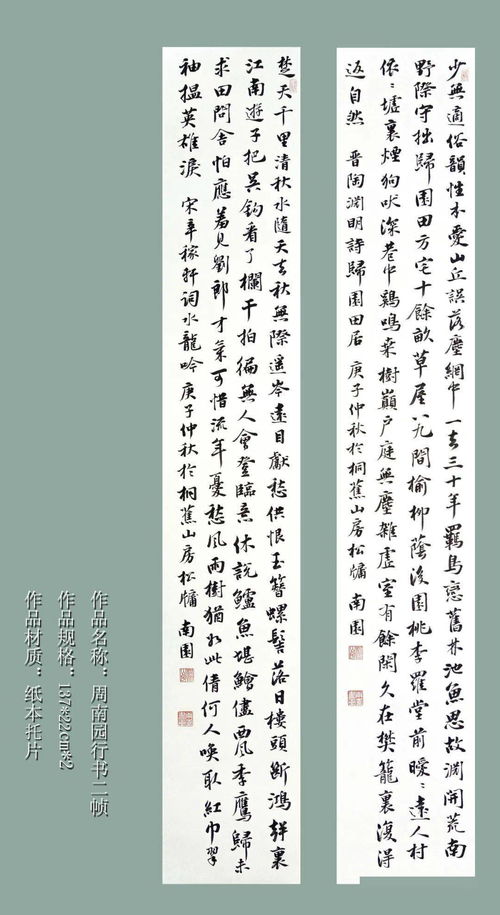 少無適俗韻性本愛山丘誤落塵網中一去三十年羈鳥戀舊林池魚思故淵開荒南
野際守拙歸園田方宅十餘畝草屋八九間榆柳蔭後園桃李羅堂前曖〻遠人村
依〻墟裏煙狗吠深巷中鷄鳴桑樹巔户庭無塵雜虛室有餘閑久在樊籠裏復得
返自然 晋陶淵明詩歸園田居 庚子仲秋於桐蕉山房松牖 南園
楚天千里清秋水隨天去秋無際遥岑遠目獻愁供恨玉簪螺髻落日樓頭斷鴻聲裏
江南遊子把吴鈎看了欄干拍徧無人會登臨意休説鱸魚堪鱠儘西風季鷹歸未
求田問舍怕應羞見劉郎才氣可惜流年憂愁風雨樹猶如此倩何人喚取紅巾翠
袖搵英雄淚 宋辛稼軒词水龍吟 庚子仲秋於桐蕉山房松牖 南園
作品名称：周南园行书二帧
作品规格：137*22cm*2
作品材质：纸本托片